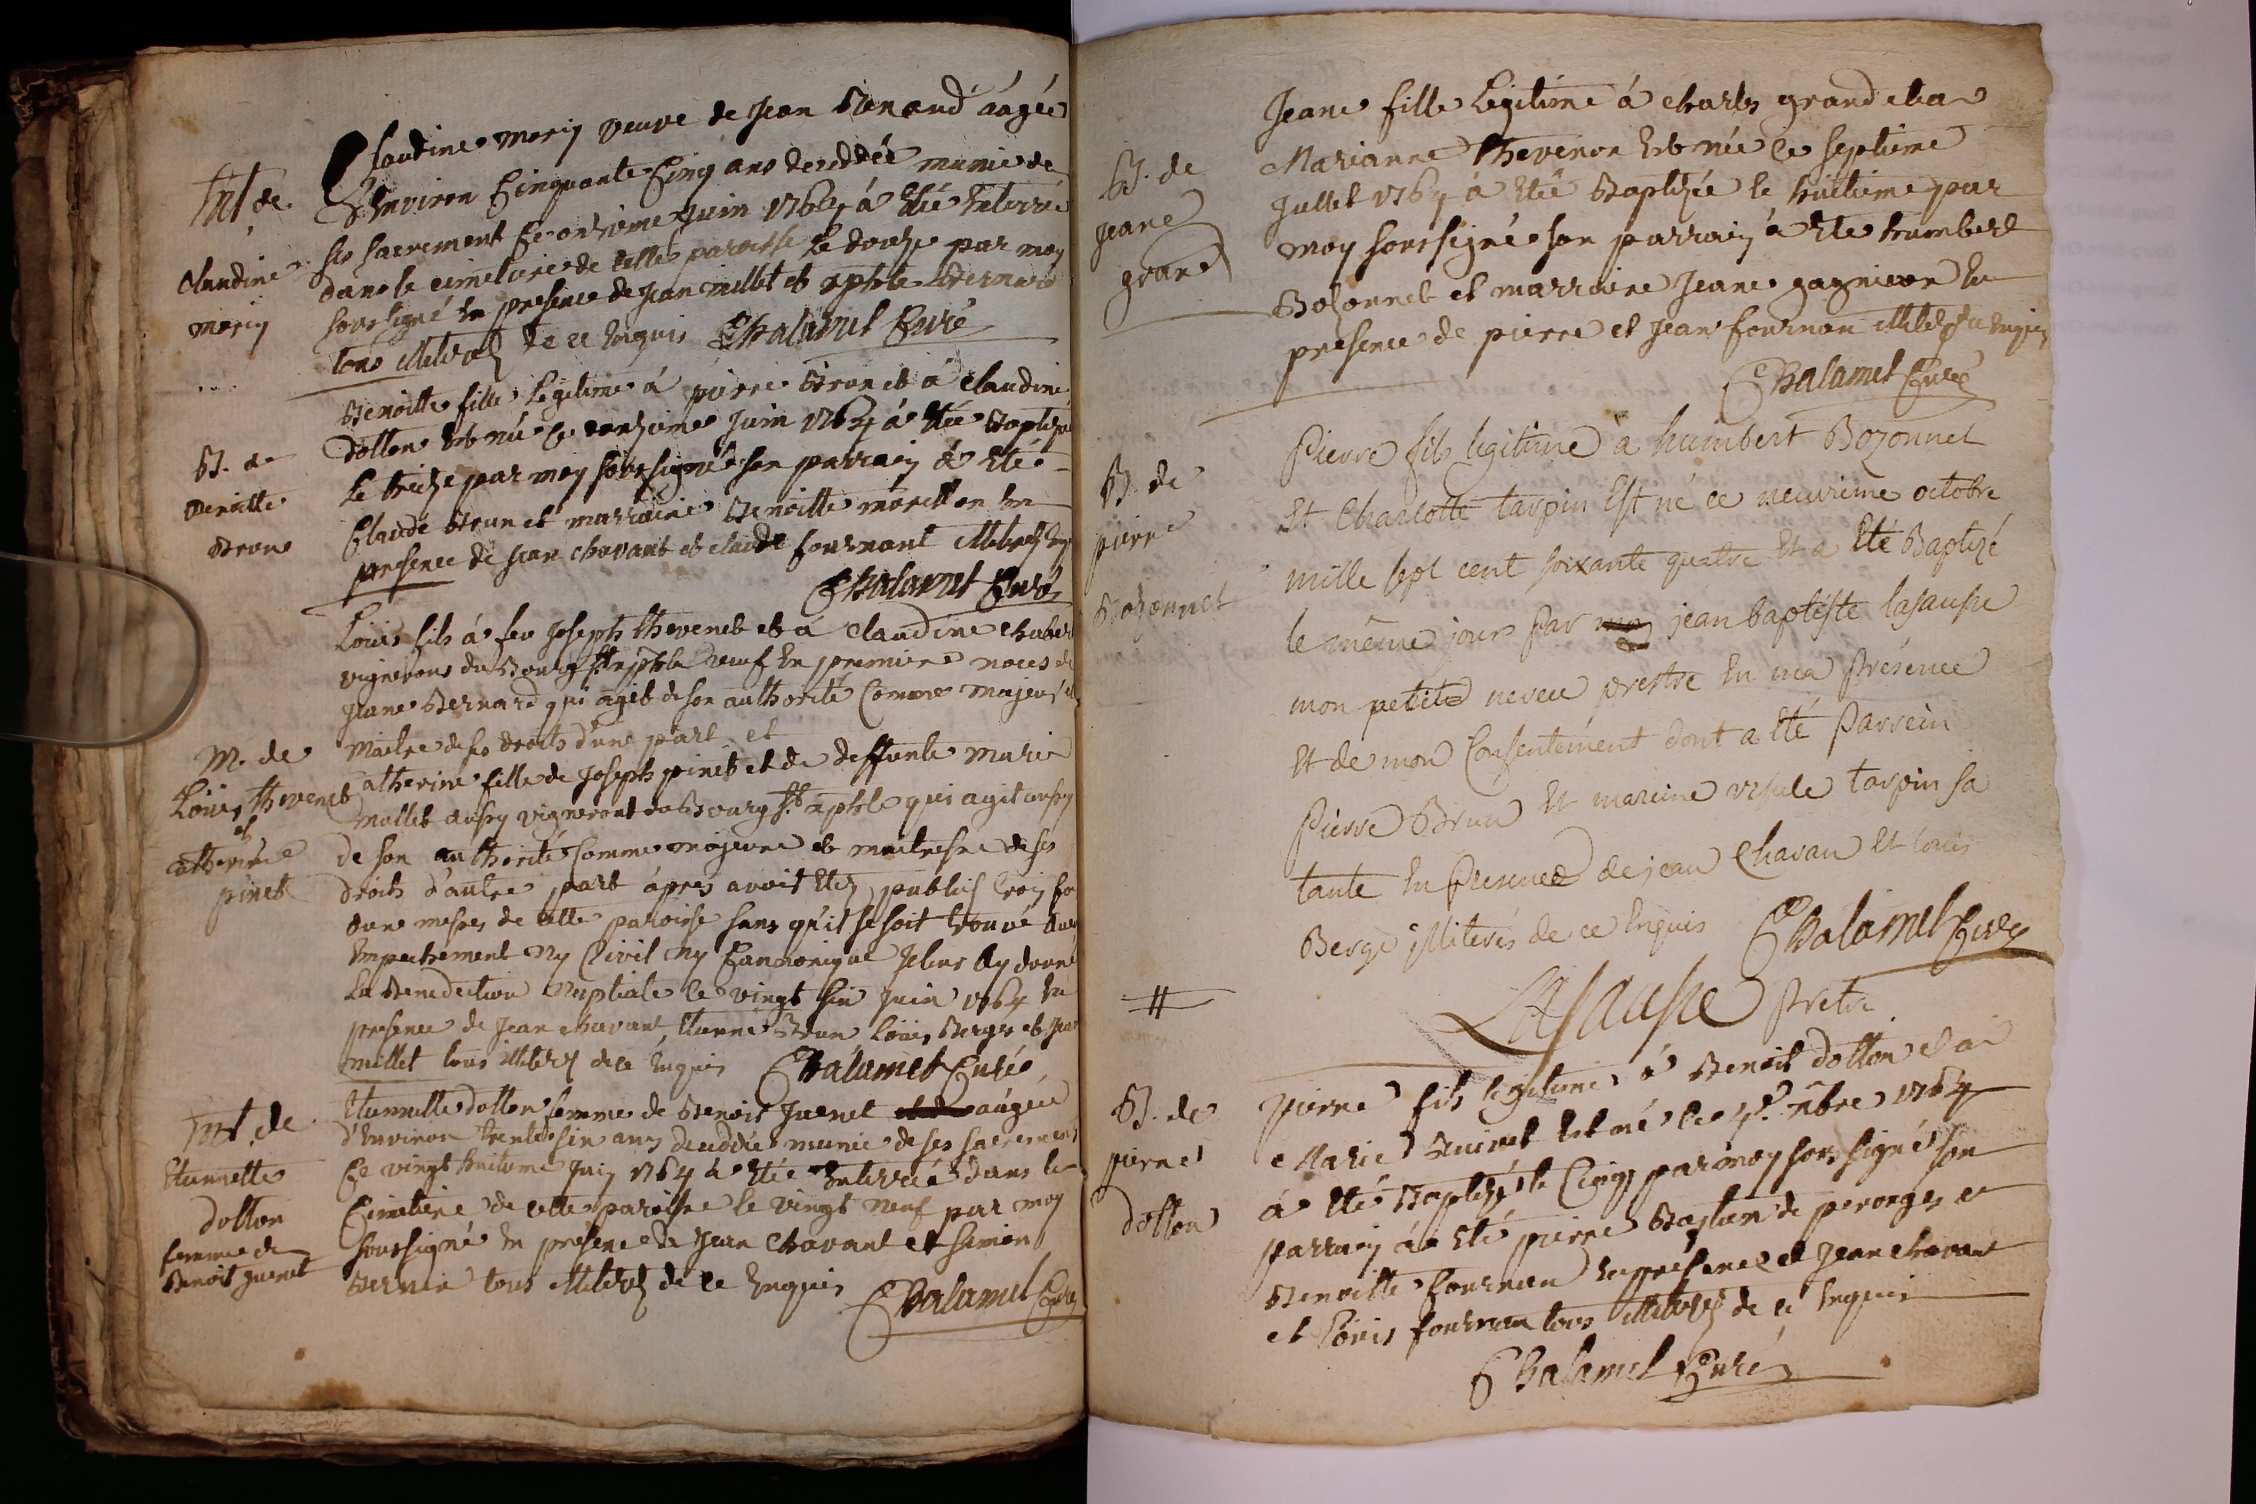 Ent. de
Claudine
morin
Claudine morin veuve de Jean Renand áagée
d'Environ Cinquante Cinq ans deceddée munie de
ses sacrement ce onzieme Juin 1764 á Etée Enterrée
dans le cimetiere de cette paroisse Le douze par moy
soussigné En presence de Jean millet et xptole Bernard
tous illiterés de ce Enquis Chalamel Curé
B. de
Benoitte
Brun
Benoitte fille Legitime á pierre Brun et á Claudine
dotton Est née ce onzieme Juin 1764 á Etée Baptizée
Le treize par moy soussigné son parrain á Eté
Claude Brun et marraine Benoitte moretton En
presence de Jean chavant et claude fournant illiterés Enq
Chalamel Curé
M. de
Loüis thevenet
et
catherine
pinet
Loüis fils á feu Joseph thevenet et á Claudine chaber
vignerons du Bourg St xptole veuf En premiere noces de
Jeane Bernard qui agit de son authorité Comme majeur et
Maitre de ses droits d'une part et
Catherine fille de Joseph pinet et de deffunte Marie
mallet aussy vigneront du Bourg St xptole qui agit aussy
de son authorité Comme majeure et maitresse de ses
droits d'autre part ápres avoir Etez publies trois fo
dans messes de cette paroisse sans qu'il se soit trouvé auc
Empechement Ny Civil Ny Cannonique Je leur Ay donné
La Benediction Nuptiale le vingt six Juin 1764 En
presence de Jean chavant, Etienne Brun Loüis Berge et Jean
millet tous illiterés de ce Enquis Chalamel Curé
Ent. de
Etiennette
dotton
femme de
Benoit Juenet
Etiennette dotton femme de Benoit Juenet áagée
d'Environ trente six ans deceddée munie de ses sacrement
Ce vingt huitieme Juin 1764 á Etée Enterrée dans le
Cimetiere de cette paroisse le vingt neuf par moy
soussigné En présence de Jean Chavant et simon
Bernin tous illiterés de ce Enquis Chalamel Curé
B. de
jeane
grand
Jeane fille Legitime á charles grand et a
Marianne thevenon Est née ce septieme
Juillet 1764 á Etée Baptizée le huitieme par
moy soussigné son parrain á Eté humbert
Bozonnet et marraine Jeane gagnieon En
presence de pierre et Jean fournon illiterés de ce Enquis
Chalamel Curé
B. de
pierre
Bozonnet
Pierre fils legitime a humbert Bozonnet
Et Charlotte tarpin Est né ce neuvieme octobre
mille sept cent soixante quatre Et a Eté Baptizé
le même jour par moy jean baptiste lasausse
mon petite neveu prestre En ma Présence
Et de mon Consentement dont a Eté Parrein
Pierre Brun Et mareine ursule tarpin sa
tante En Presence de jean Chavan Et louis
Berge illiterés de ce Enquis Chalamel Curé
Lasausse Pretre
B. de
pierre
dotton
pierre fils legitime á Benoit dotton et a
Marie Est né le 4e. Nbre 1764
á Eté Baptizé le Cinq par moy soussigné son
parrain á Eté pierre Baston de perouges et
Benoitte fournon En présence de Jean chavant
et Loüis fournon tous illiterés de ce Enquis
Chalamel Curé